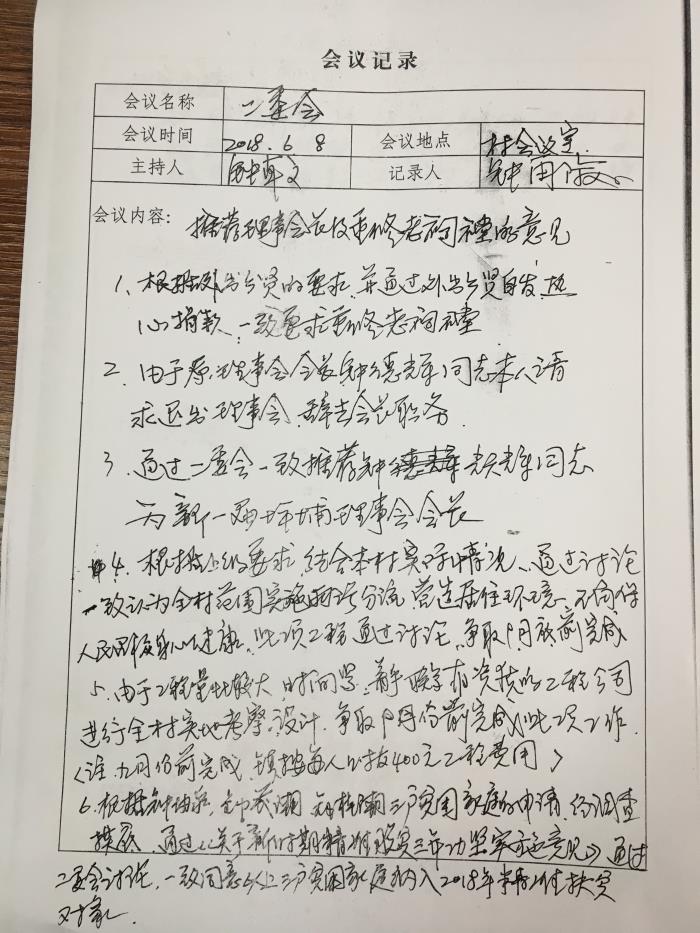 会议记录
会议名称 二委会
会议时间 2018.6 8 会议地点 村会议室
主持人 记录人
会议内容: 推荐理事会长及重修老祠堂的意见
1、根据外出乡贤的要求,并通过外出乡贤自发,热
心捐款,一致要求重修老祠堂
2、由于原理事会会长钟德光同志本人请
求退出理事会,辞去会长职务
3、通过二委会一致推荐钟 光辉同志
为新一届 埔理事会会长
4、根据上级要求,结合本村实际情况,通过讨论
一致认为全村范围实施雨污分流,营造居住环境,不仅保
人民 身心健康,此项工程通过讨论,争取9月底前完成
5、由于工程量比较大,时间紧,聘请有资质的工程公司
进行全村实地考察、设计,争取9月份前完成此项工作.
(注:九月份前完成,镇按每人口拨400元工程费用)
6、根据钟 三户贫困家庭的申请,经调查
摸底,通过《关于新时期精准脱贫三年攻坚实施意见》通过
二委会讨论,一致同意以上三户贫困家庭纳入2018年 精准扶贫
对象.